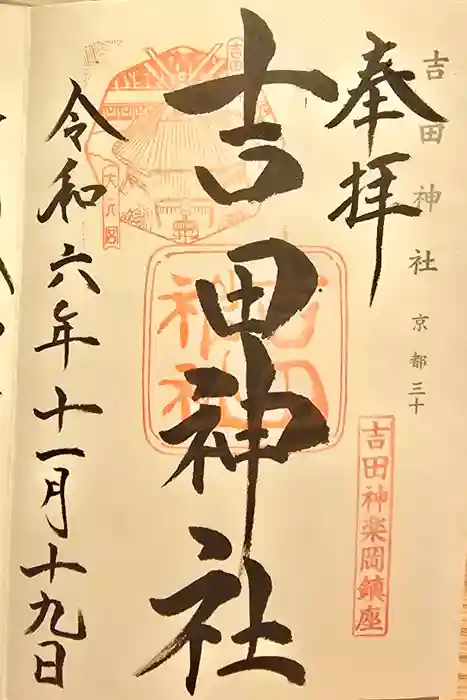 吉田神社 京都三十
奉拝
吉田神楽岡鎮座
吉田神社
吉田神社
大元宮
令和六年十一月十九日